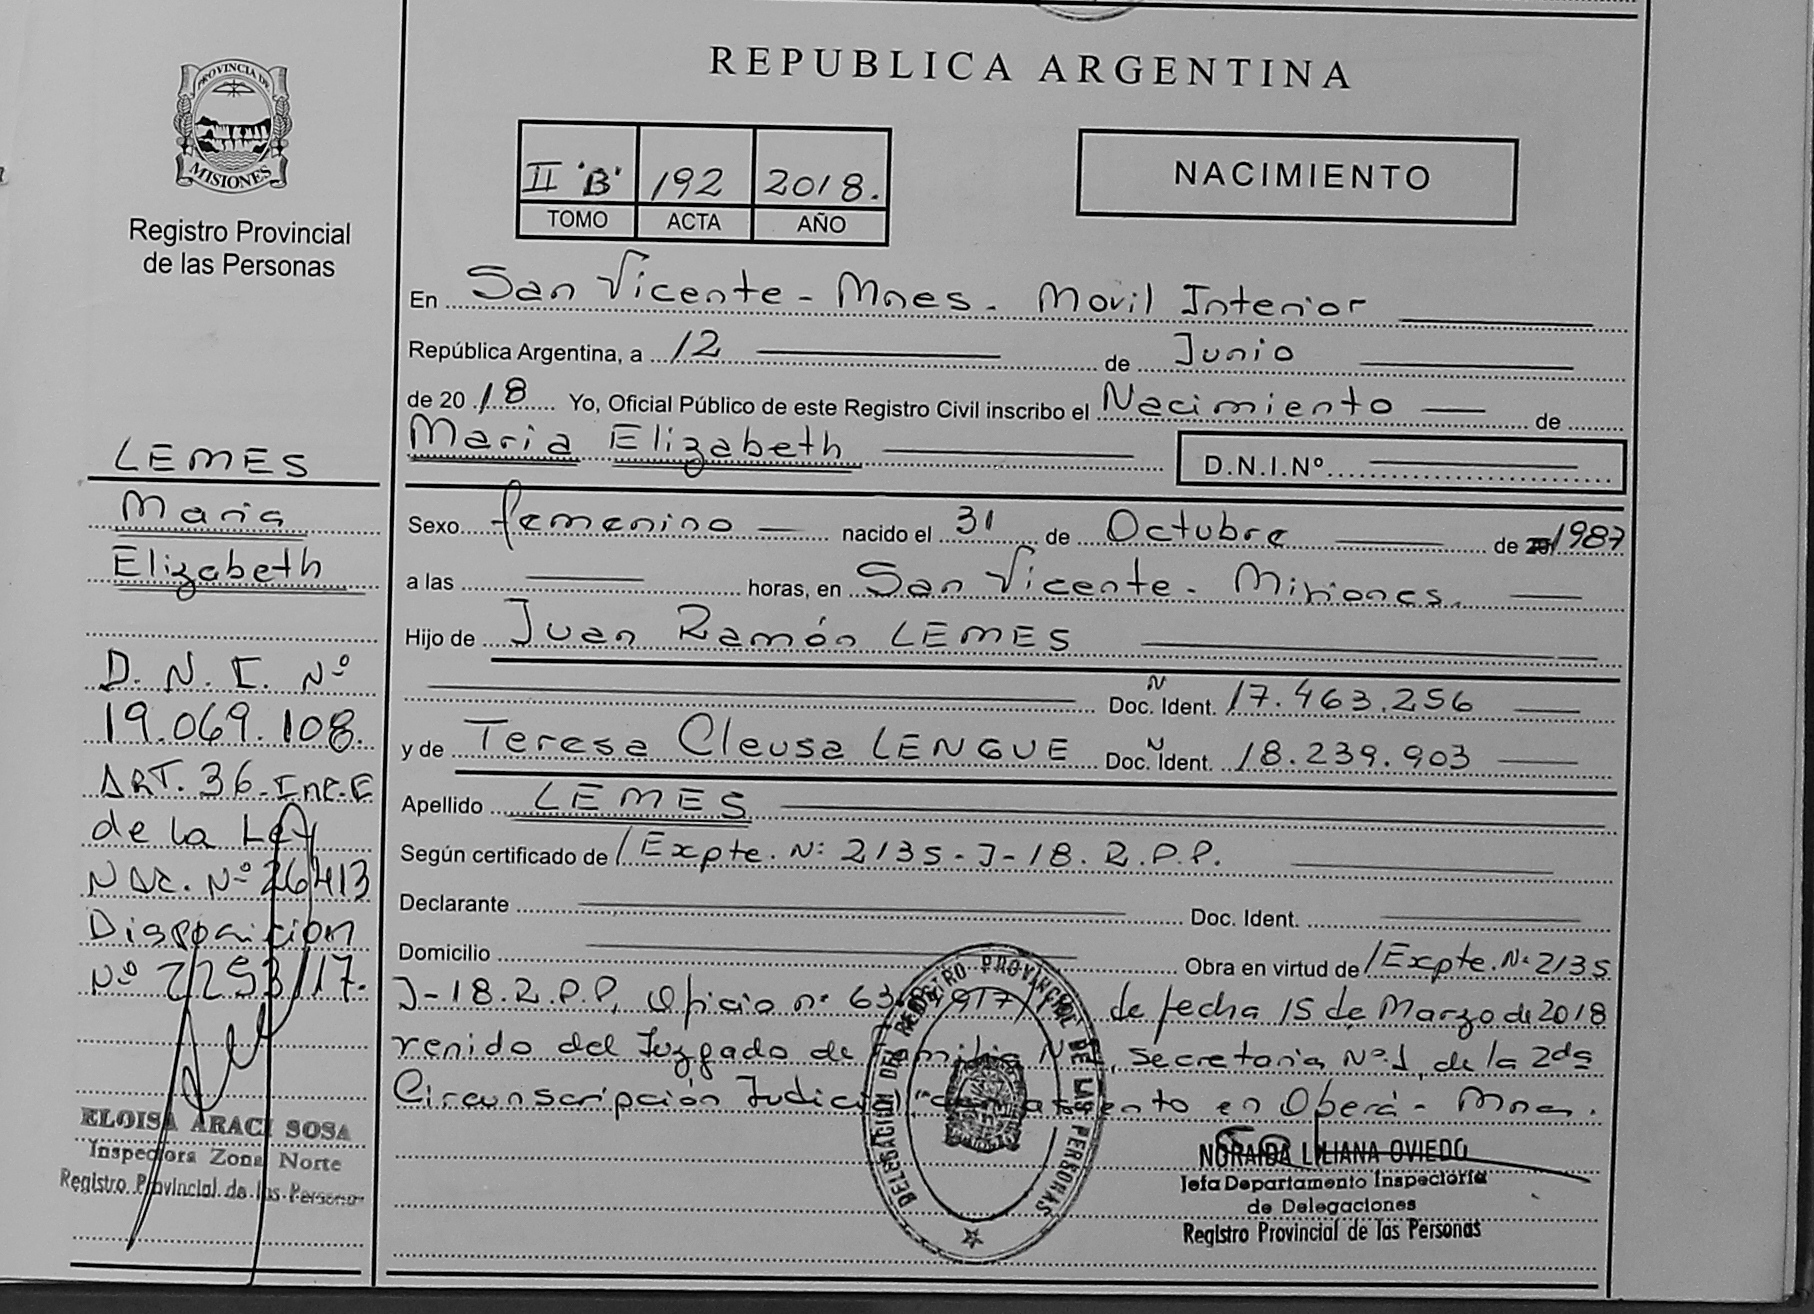 REPUBLICA ARGENTINA
PROVINCIA DE
MISIONES
Registro Provincial
de las Personas
II "B" 192 2018.
TOMO ACTA AÑO
NACIMIENTO
En San Vicente - Mnes. Movil Interior
República Argentina, a 12 de Junio
de 2018 Yo, Oficial Público de este Registro Civil inscribo el Nacimiento de
Maria Elizabeth D.N.I.Nº
Sexo femenino nacido el 31 de Octubre de 1987
a las horas, en San Vicente - Misiones.
Hijo de Juan Ramón LEMES
Doc. Ident. 17.463.256
y de Teresa Cleusa LENGUE Doc. Ident. 18.239.903
Apellido LEMES
Según certificado de /Expte. N: 2135-J-18. R.P.P.
Declarante Doc. Ident.
Domicilio Obra en virtud de /Expte. N: 2135
J-18.R.P.P, Oficio nº de fecha 15 de Marzo de 2018
renido del Juzgado de Familia Secretaria Nº 1, de la 2da
Circunscripción Judicial en Oberá - Mnes.
LEMES
Maria
Elizabeth
D. N. I. Nº
19.069.108.
ART. 36 - Inc. E
de la Ley
NAC. Nº 26413
Disposicion
Nº 2253/17.
ELOISA ARACI SOSA
Inspectora Zona Norte
Registro Provincial de las Personas
DELEGACION DEL REGISTRO PROVINCIAL DE LAS PERSONAS
NORAIDA LILIANA OVIEDO
Jefa Departamento Inspectoria
de Delegaciones
Registro Provincial de las Personas